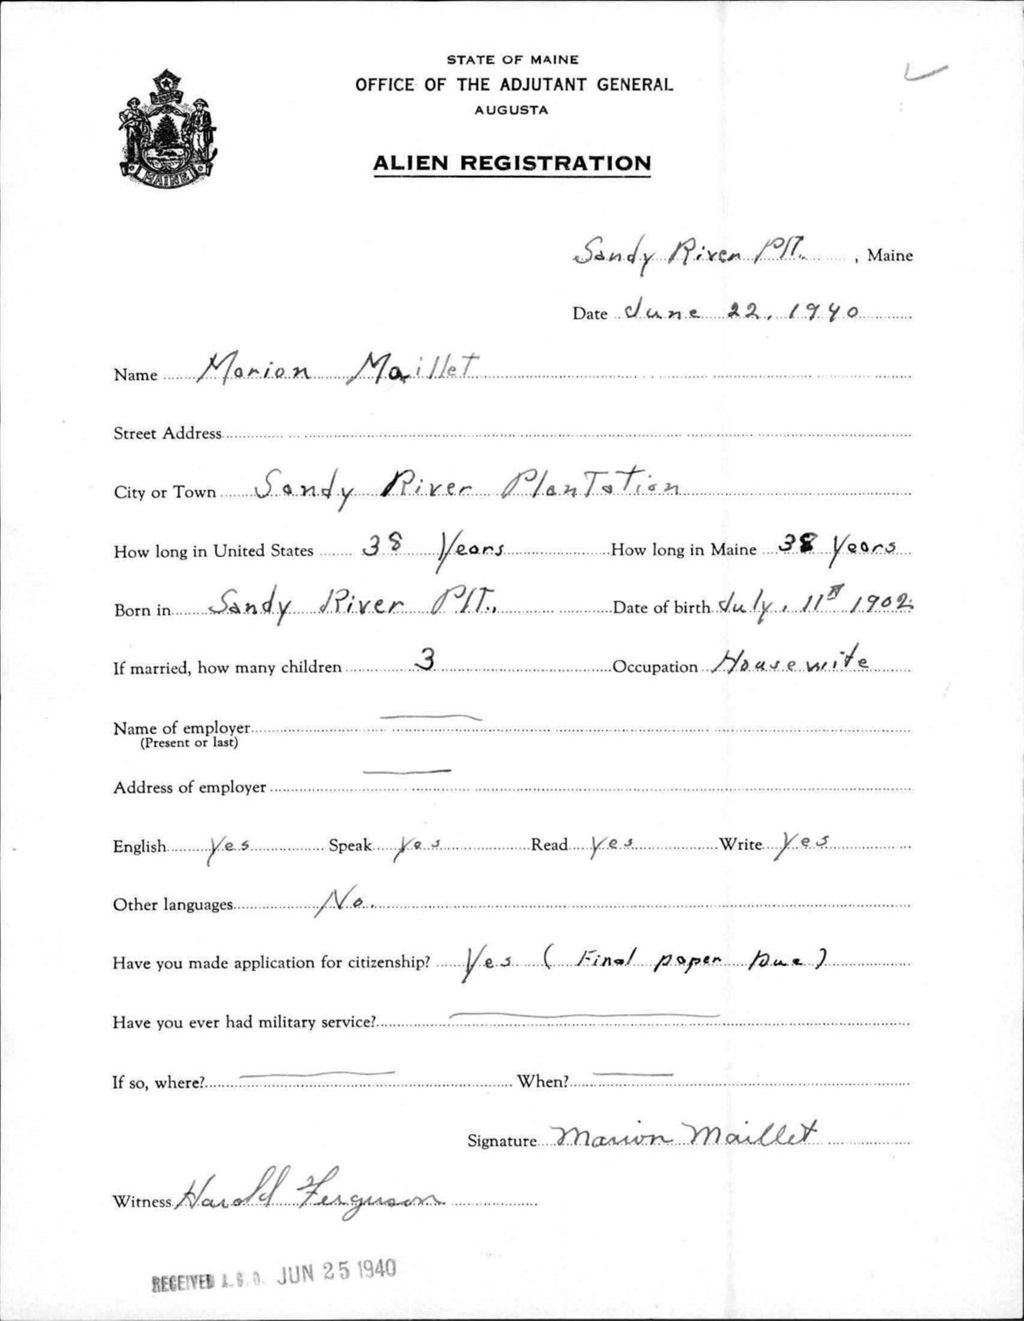 STATE OF MAINE
OFFICE OF THE ADJUTANT GENERAL
AUGUSTA
ALIEN REGISTRATION
MAINE
Sandy River Plt. , Maine
Date June 22, 1940
Name Marion Maillet
Street Address
City or Town Sandy River Plantation
How long in United States 38 Years How long in Maine 38 Years
Born in Sandy River Plt., Date of birth July, 11th 1902
If married, how many children 3 Occupation Housewife
Name of employer
(Present or last)
Address of employer
English Yes Speak Yes Read Yes Write Yes
Other languages No.
Have you made application for citizenship? Yes ( Final paper Due )
Have you ever had military service?
If so, where? When?
Signature Marion Maillet
Witness Harold Ferguson
RECEIVED A.G.O. JUN 25 1940